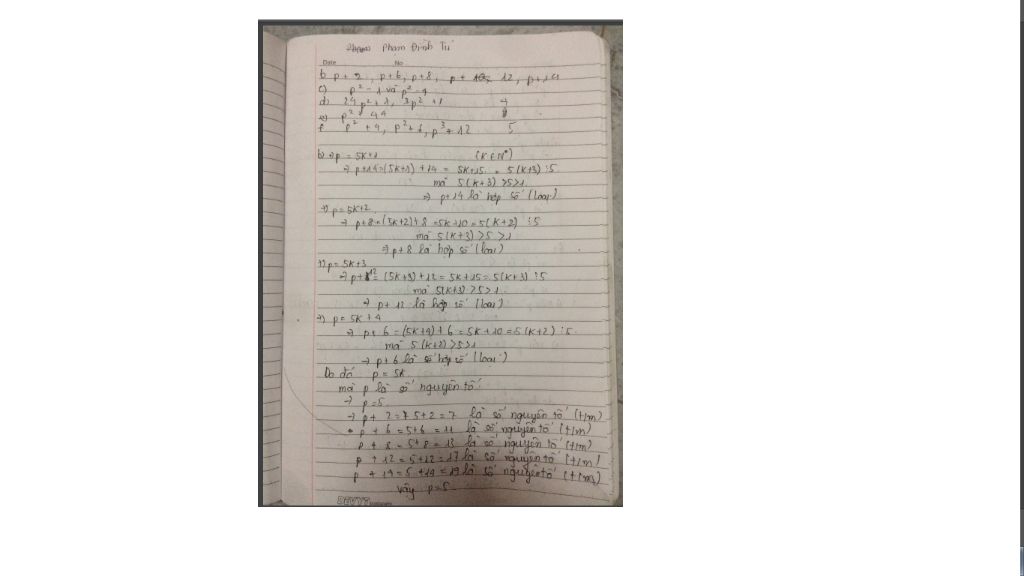 Phạm Đình Tú
Date No
b p + 2, p+6, p+8, p + 12, p+14
c) p² - 1 và p² - 4
d) 24p² + 1, 3p² + 1 4
e) p² + 44
f p² + 4, p² + 6, p³ + 12 5
b) +) p = 5k+1 (k ∈ N*)
→ p+14=(5k+1) +14 = 5k+15 = 5(k+3) ⋮5
mà 5(k+3) >5>1
→ p+14 là hợp số (loại)
+) p=5k+2
→ p+8=(5k+2)+8 =5k+10=5(k+2) ⋮5
mà 5(k+3) >5 >1
→ p+8 là hợp số (loại)
+) p=5k+3
→ p+12= (5k+3)+12= 5k+15= 5(k+3) ⋮5
mà 5(k+3) >5>1
→ p+ 12 là hợp số (loại)
+) p= 5k+4
→ p+ 6 =(5k+4)+ 6 =5k+10 =5(k+2) ⋮5
mà 5(k+2) >5>1
→ p+6 là số hợp số (loại)
Do đó p = 5k
mà p là số nguyên tố
→ p=5
→ p+ 2 = 5+2 = 7 là số nguyên tố (t/m)
p + 6 = 5+6 = 11 là số nguyên tố (t/m)
p + 8 = 5+8 = 13 là số nguyên tố (t/m)
p + 12 = 5+12 = 17 là số nguyên tố (t/m)
p + 14 = 5+14 = 19 là số nguyên tố (t/m)
vậy p=5